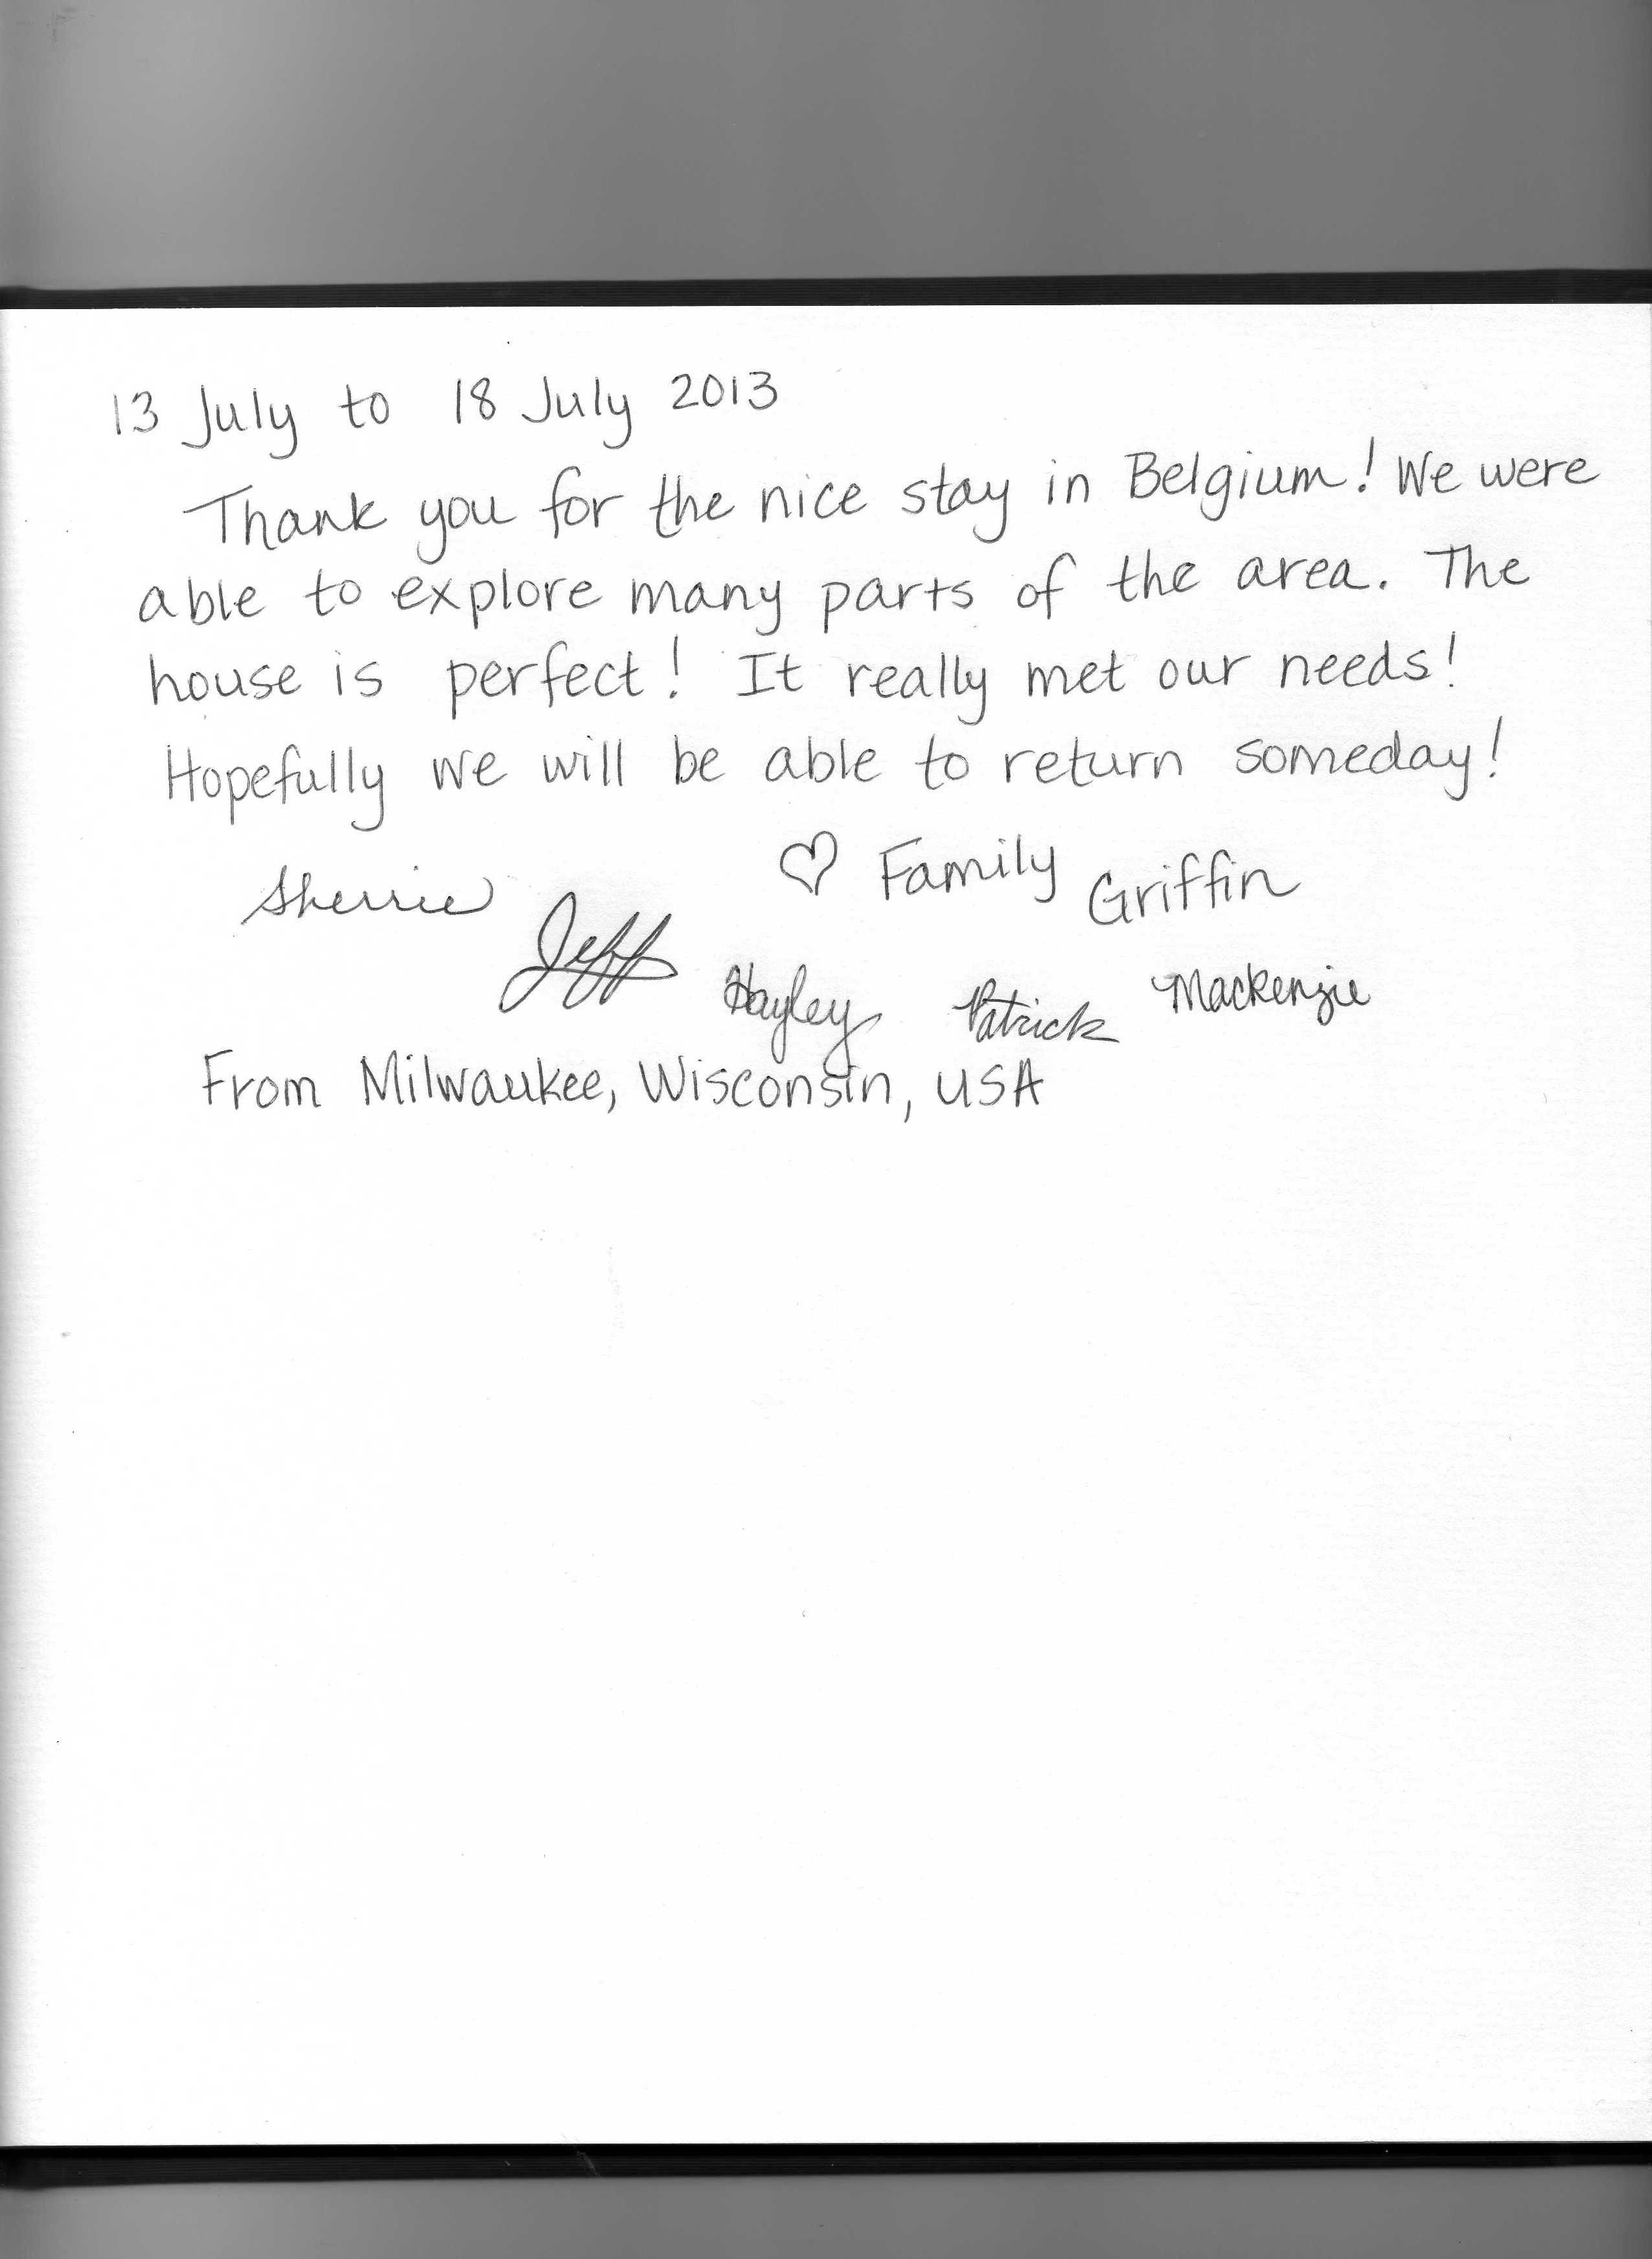 13 July to 18 July 2013
Thank you for the nice stay in Belgium! We were
able to explore many parts of the area. The
house is perfect! It really met our needs!
Hopefully we will be able to return someday!
♡ Family Griffin
Sherrie Jeff Hayley Patrick Mackenzie
From Milwaukee, Wisconsin, USA